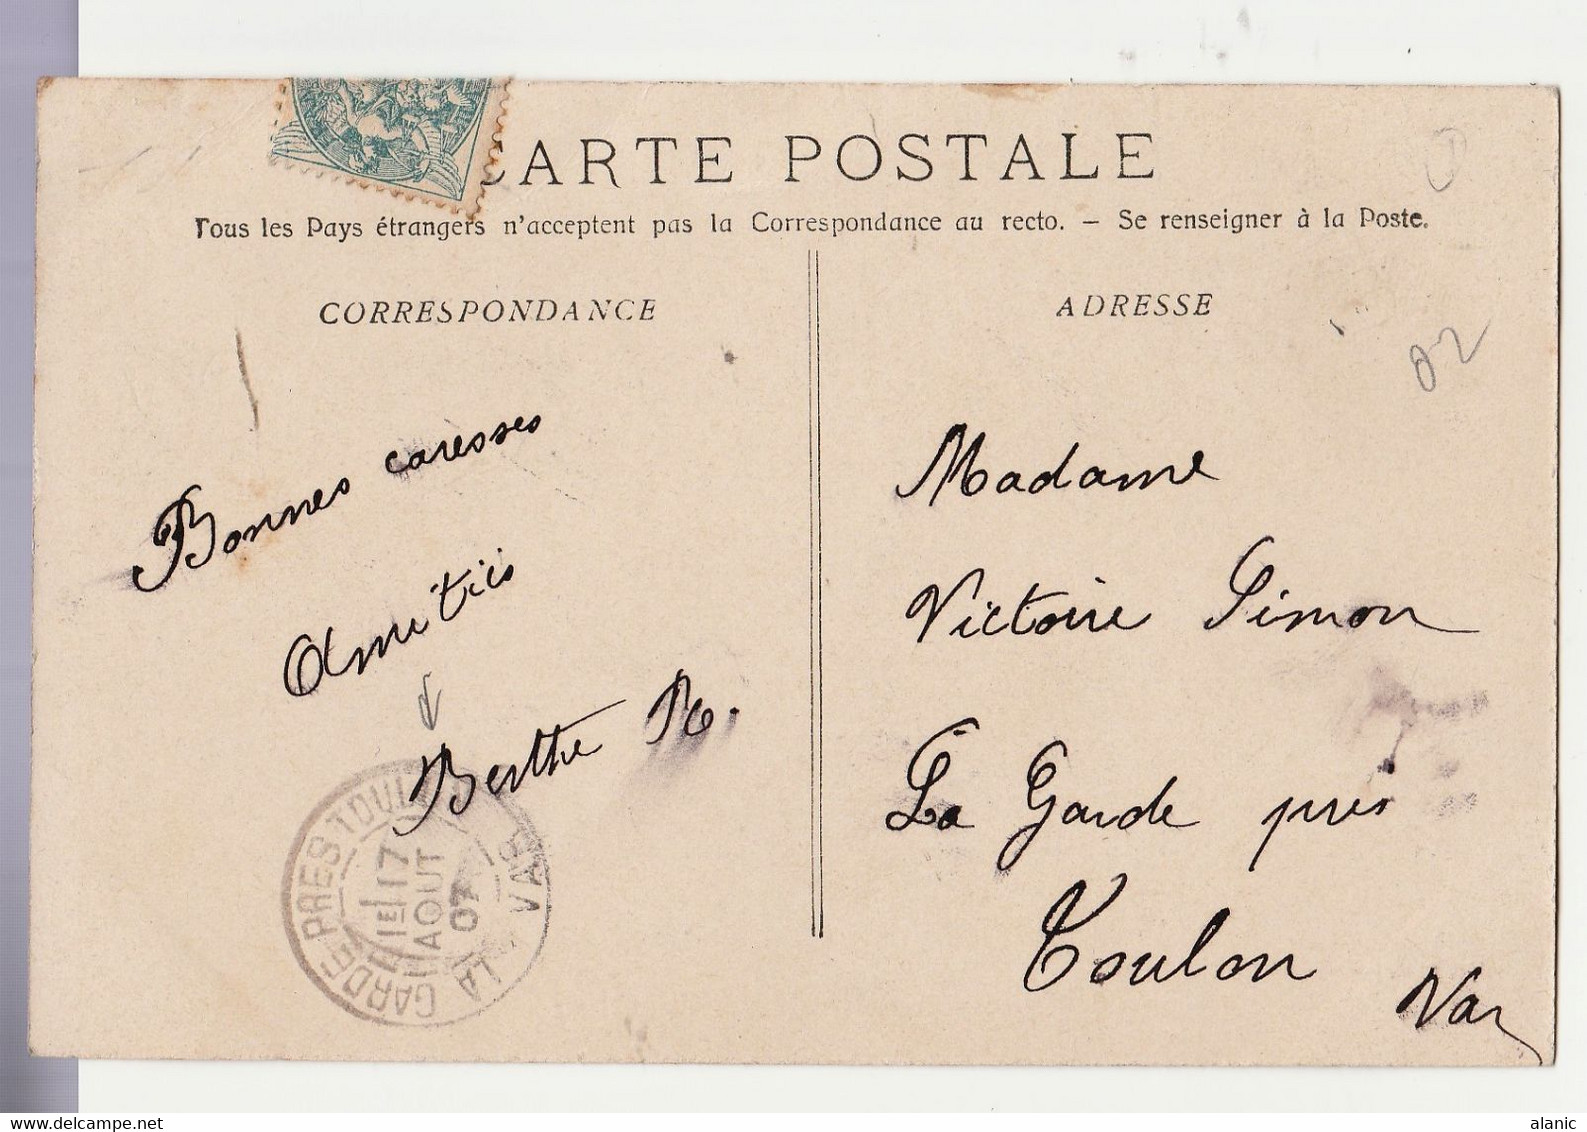 CARTE POSTALE
Tous les Pays étrangers n'acceptent pas la Correspondance au recto. — Se renseigner à la Poste.
CORRESPONDANCE
Bonnes caresses
Amitiés
Berthe R.
LA GARDE PRES TOULON VAR
1E 17
AOUT
07
ADRESSE
02
Madame
Victoire Simon
La Garde près
Toulon
Var
alanic